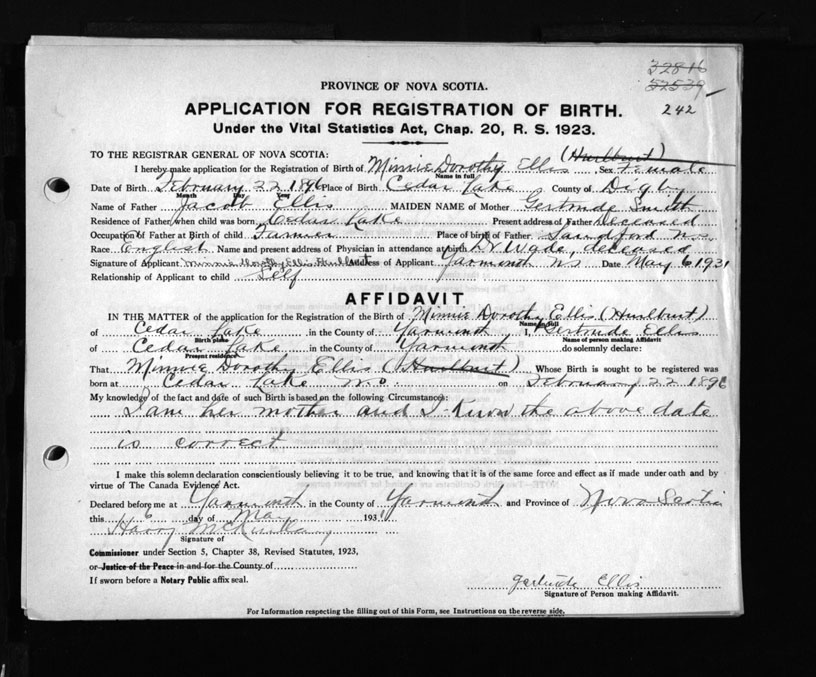 32816
52539
242
PROVINCE OF NOVA SCOTIA.
APPLICATION FOR REGISTRATION OF BIRTH.
Under the Vital Statistics Act, Chap. 20, R. S. 1923.
(Hurlburt)
TO THE REGISTRAR GENERAL OF NOVA SCOTIA:
I hereby make application for the Registration of Birth of Minnie Dorothy Ellis Sex Female
Name in full
Date of Birth February 22 1896 Place of Birth Cedar Lake County of Digby
Month Year
Name of Father Jacob Ellis MAIDEN NAME of Mother Gertrude Smith
Residence of Father when child was born Cedar Lake Present address of Father Deceased
Occupation of Father at Birth of child Farmer Place of birth of Father Sandford N.S.
Race English Name and present address of Physician in attendance at birth Dr Wade, deceased
Signature of Applicant Minnie Dorothy Ellis Hurlburt Address of Applicant Yarmouth NS Date May 6 1931
Relationship of Applicant to child Self
AFFIDAVIT
IN THE MATTER of the application for the Registration of the Birth of Minnie Dorothy Ellis (Hurlburt)
Name in full
of Cedar Lake in the County of Yarmouth I, Gertrude Ellis
Birth place Name of person making Affidavit
of Cedar Lake in the County of Yarmouth do solemnly declare:
Present residence
That Minnie Dorothy Ellis (Hurlburt) Whose Birth is sought to be registered was
born at Cedar Lake N.S. on February 22 1896
My knowledge of the fact and date of such Birth is based on the following Circumstances:
I am her mother and I know the above date
is correct
I make this solemn declaration conscientiously believing it to be true, and knowing that it is of the same force and effect as if made under oath and by
virtue of The Canada Evidence Act.
Declared before me at Yarmouth in the County of Yarmouth and Province of Nova Scotia
this 6 day of May 1931
Harry
Signature of
Commissioner under Section 5, Chapter 38, Revised Statutes, 1923,
or Justice of the Peace in and for the County of
If sworn before a Notary Public affix seal.
Gertrude Ellis
Signature of Person making Affidavit.
For Information respecting the filling out of this Form, see Instructions on the reverse side.